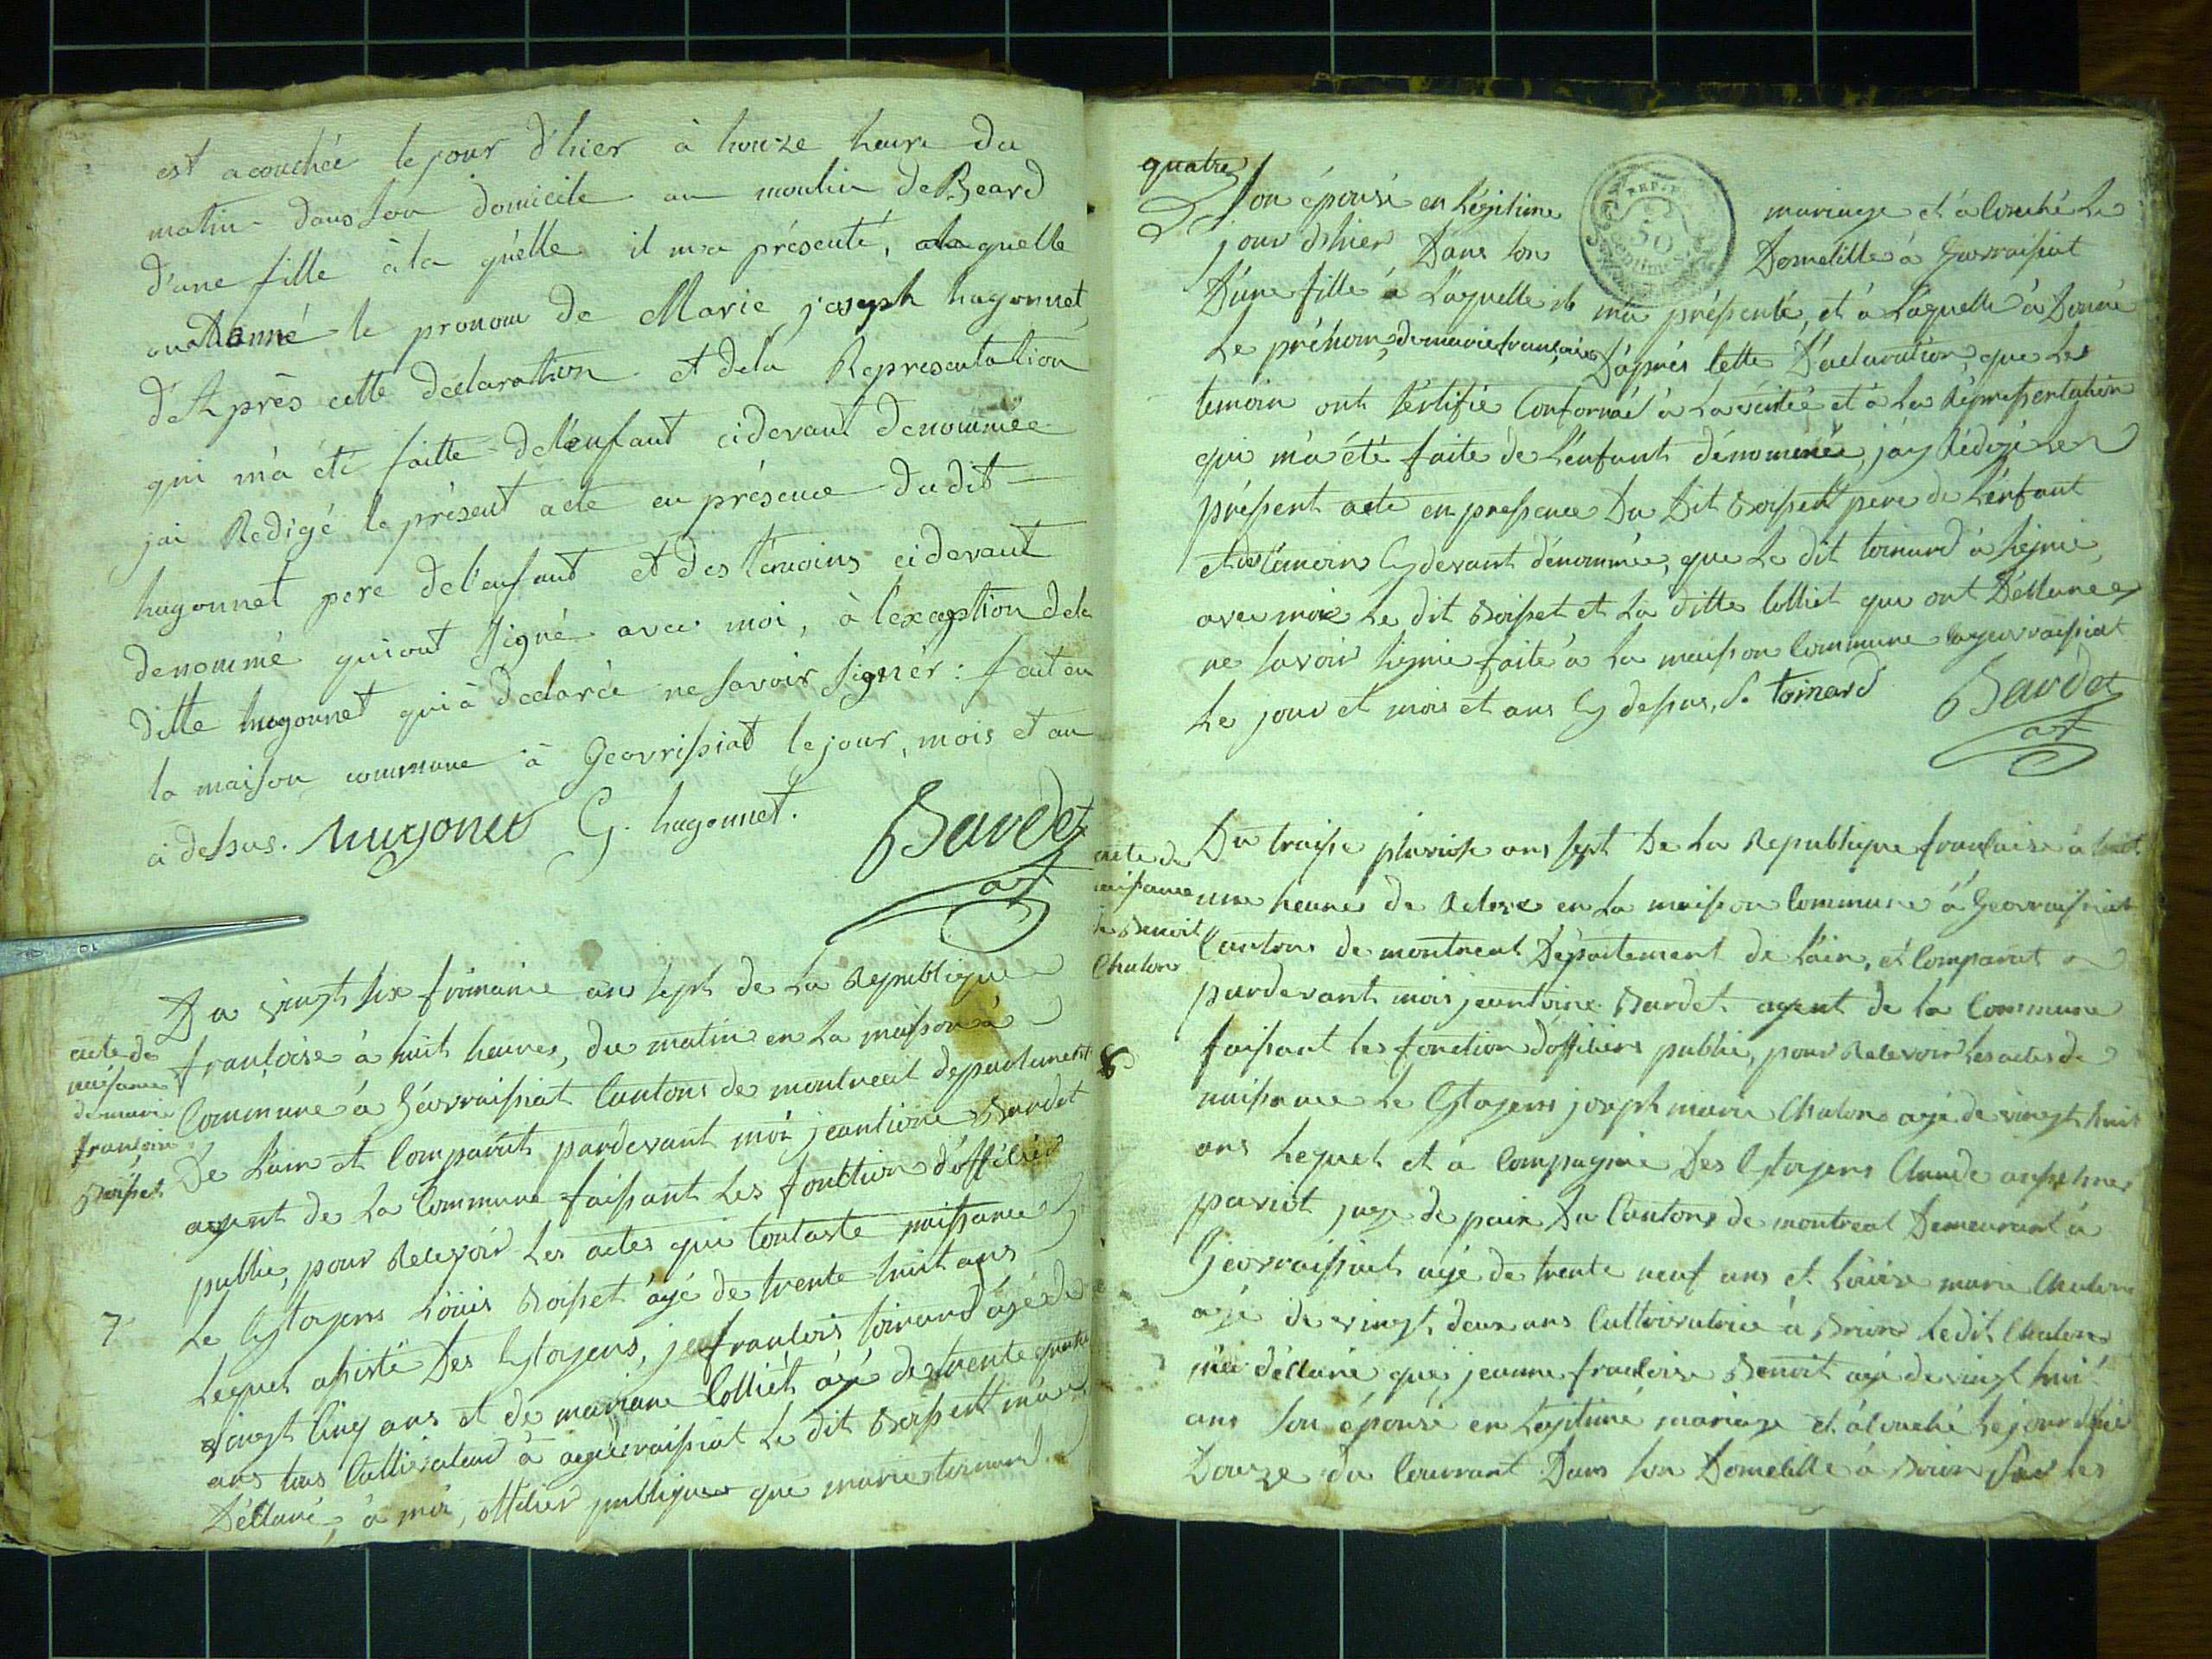 est acouchée le jour d'hier à honze heure du
matin dans son domicile au moulin de Beard
d'une fille à la quelle il m'a présenté, a laquelle
on a donné le pronom de Marie joseph hugonnet
d'Après cette declaration et dela Representation
qui m'a été faitte de l'enfant cidevant denommée
jai Redigé le présent acte en présence dudit
hugonnet pere de l'enfant et des temoins cidevant
denommé qui ont signé avec moi, à l'exception dela
ditte hugonnet qui à declarée ne savoir signer : fait en
la maison commune à Geovrissiat le jour, mois et an
ci dessus. hugonet G. hugonnet. Bardet
agt
acte de
naissance
de marie
francoise
Boisset
7
Du vingt six frimaire ans sept de la Republique
francoise à huit heures, du matin en la maison à
Commune à Géovraissiat Cantons de montreal departement
De L'ain et Comparut pardevant moi jeantoine Bardet
agent de la Commune faissant les fonction d'officier
public, pour Recevoir les actes qui Contaste naissance
Le Cytoyens Loüis Boisset âgé de trente huit ans
Lequel assisté Des Cytoyens, jeafrancois toinard âgé de
vingt Cinq ans et de mariane Colliet âgé de trente quatre
ans tous Cultivateur à ageovraissiat Le dit Boissett m'a
Déclaré, à moi, officier publique que marie toinard
quatre
son épouse en Légitime mariage et à Couché Le
REP.F.
50
Centimes
jour d'hier Dans son Domicille à Geovraissiat
D'une fille à Laquelle il m'a préssenté, et à Laquelle à Donné
Le prénom, de marie françoise D'après cette Déclaration, que Les
temoin ont Certifié Conformé à La vérité et à La Représsentation
qui m'a été faite de L'enfant dénommée, j'ay Rédigé Le
préssent acte en pressence Du Dit Boissett pere de L'enfant
et des témoins Cy devant dénommée, que Le dit toinard à signie
avec moi Le dit Boisset et La ditte Colliet qui ont Déclaree
ne savoir signie faite à La maisson Commune ageovraissiat
Le jour et mois et ans Cy dessus, J. toinard Bardet
agt
acte de
naissance
de Benoit
Chalon
8
Du traise pluviose ans sept De La Republique francaise à
une heures de Relevé en La maisson Commune à Geovraissiat
Cantons de montreal Département de L'ain, et Comparut
pardevant mois jeantoine Bardet agent de la Commune
faissant les fonction d'officiers public, pour Recevoir les actes de
naissance Le Cytoyens joseph marie Chalon agé de vingt huit
ans Lequel et à Compagnie Des Cytoyens Claude
pariot juge de paix Du Cantons de montreal Demeurant à
Geovraissiat agé de trente neuf ans et Loüise marie Chalon
agé de vingt deux ans Cultivatrice à Brion Ledit Chalon
m'a déclaré que, jeanne francoise Benoit agé de vingt huit
ans son épouse en Légitime mariage et à Couché Le jour d'hier
Douze du Courrant Dans son Domicille à Brion sur les